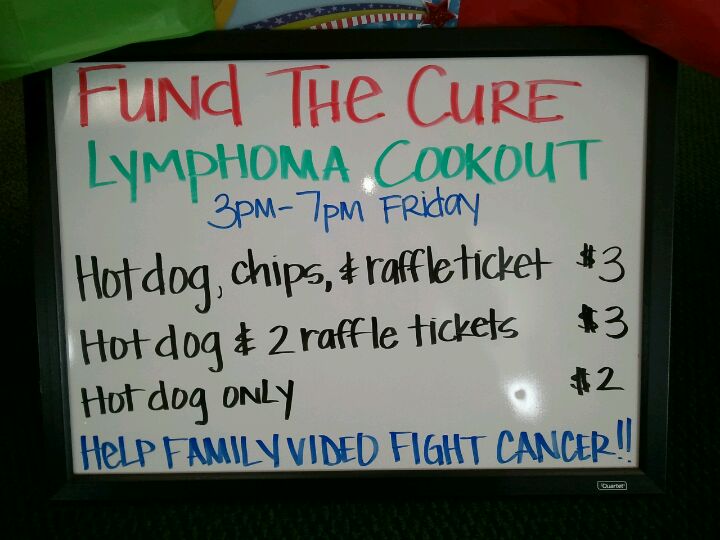 FUNd THE CURE
LYMPHOMA COOKOUT
3PM-7PM FRiday
Hot dog, chips, & raffle ticket $3
Hot dog & 2 raffle tickets $3
Hot dog ONLY $2
HeLP FAMILY VIDEO FIGHT CANCER!!
Quartet